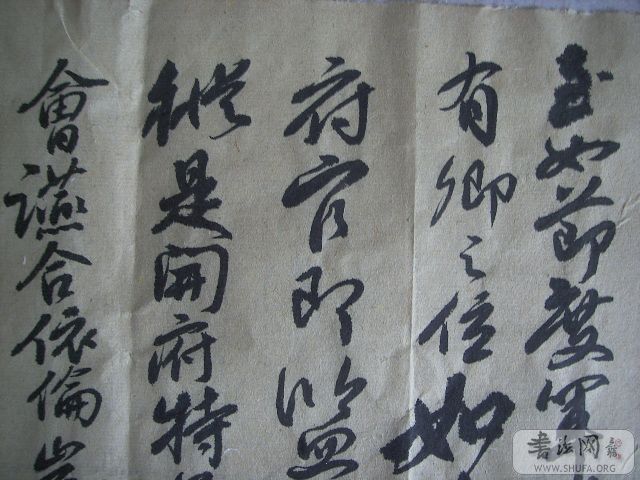 至如節度軍
有卿之位如
府官即監
縱是開府特
會讌合依倫
書法网
WWW.SHUFA.ORG